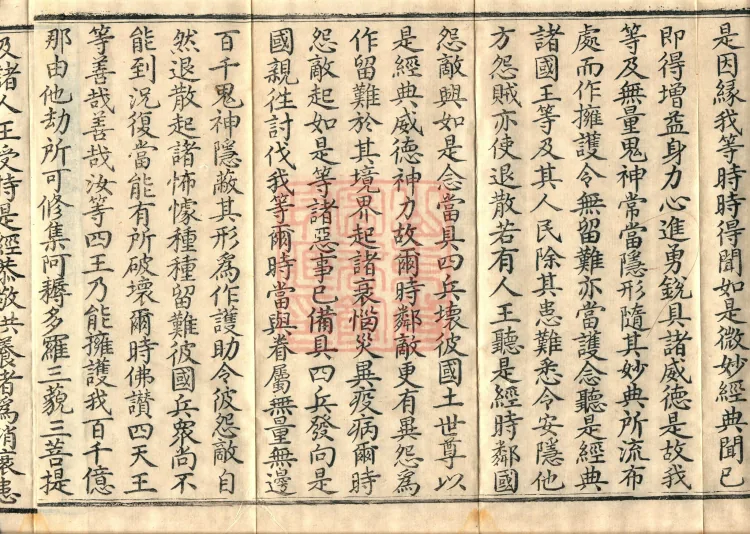 是因緣我等時時得聞如是微妙經典聞已
即得增益身力心進勇銳具諸威德是故我
等及無量鬼神常當隱形隨其妙典所流布
處而作擁護令無留難亦當護念聽是經典
諸國王等及其人民除其患難悉令安隱他
方怨賊亦使退散若有人王聽是經時鄰國
怨敵興如是念當具四兵壞彼國土世尊以
是經典威德神力故爾時鄰敵更有異怨為
作留難於其境界起諸衰惱災異疫病爾時
怨敵起如是等諸惡事已備具四兵發向是
國親徃討伐我等爾時當與眷屬無量無邊
百千鬼神隱蔽其形為作護助令彼怨敵自
然退散起諸怖懅種種留難彼國兵眾尚不
能到況復當能有所破壞爾時佛讚四天王
等善哉善哉汝等四王乃能擁護我百千億
那由他劫所可修集阿耨多羅三藐三菩提
及諸人王受持是經恭敬供養者為消衰患